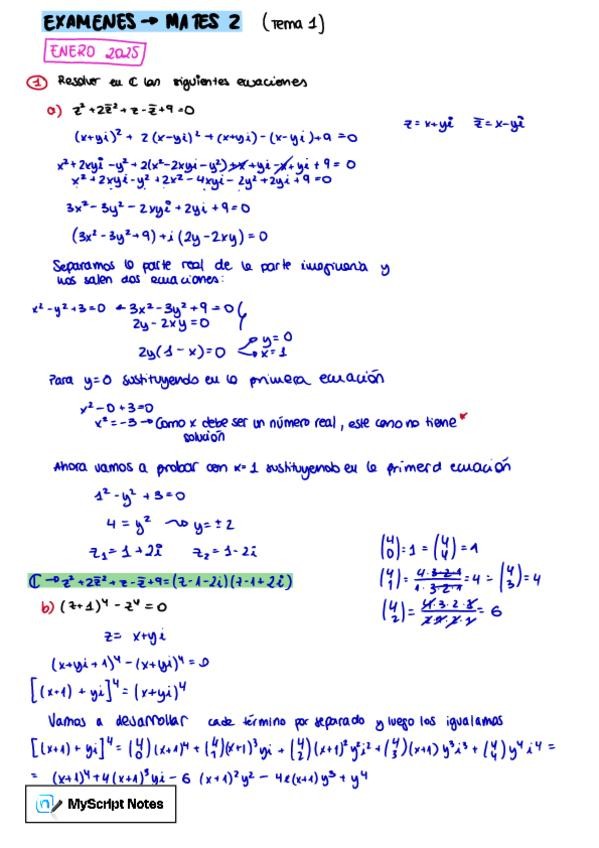 EXAMENES → MATES 2 (Tema 1)
ENERO 2025
① Resolver en ℂ las siguientes ecuaciones
a) z² + 2z̄² + z - z̄ + 9 = 0
z = x+yi z̄ = x-yi
(x+yi)² + 2(x-yi)² + (x+yi) - (x-yi) + 9 = 0
x² + 2xyi - y² + 2(x² - 2xyi - y²) + x + yi - x + yi + 9 = 0
x² + 2xyi - y² + 2x² - 4xyi - 2y² + 2yi + 9 = 0
3x² - 3y² - 2xyi + 2yi + 9 = 0
(3x² - 3y² + 9) + i(2y - 2xy) = 0
Separamos la parte real de la parte imaginaria y
nos salen dos ecuaciones:
x² - y² + 3 = 0 ← 3x² - 3y² + 9 = 0
2y - 2xy = 0
2y(1 - x) = 0 y = 0
x = 1
Para y=0 sustituyendo en la primera ecuación
x² - 0 + 3 = 0
x² = -3 → Como x debe ser un número real, este caso no tiene
solución
Ahora vamos a probar con x=1 sustituyendo en la primera ecuación
1² - y² + 3 = 0
4 = y² → y = ± 2
z₁ = 1 + 2i z₂ = 1 - 2i
ℂ → z² + 2z̄² + z - z̄ + 9 = (z - 1 - 2i)(z - 1 + 2i)
(4 0) = 1 = (4 4) = 1
(4 1) = 4·3·2·1 / 1·3·2·1 = 4 = (4 3) = 4
(4 2) = 4·3·2·1 / 2·1·2·1 = 6
b) (z+1)⁴ - z⁴ = 0
z = x+yi
(x+yi+1)⁴ - (x+yi)⁴ = 0
[(x+1) + yi]⁴ = (x+yi)⁴
Vamos a desarrollar cada término por separado y luego los igualamos
[(x+1) + yi]⁴ = (4 0)(x+1)⁴ + (4 1)(x+1)³yi + (4 2)(x+1)²y²i² + (4 3)(x+1)y³i³ + (4 4)y⁴i⁴ =
= (x+1)⁴ + 4(x+1)³yi - 6(x+1)²y² - 4i(x+1)y³ + y⁴
MyScript Notes